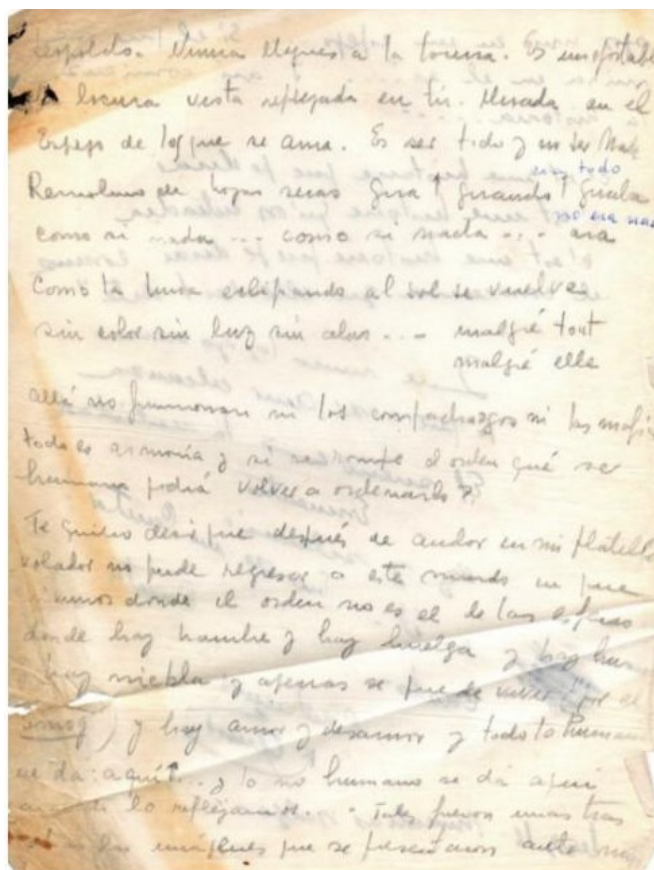 Leopoldo. Nunca llegues a la locura. Es insoportable
la locura vista reflejada en tí. Mirada en el
Espejo de los que se ama. Es ser todo y un ser Nada
era todo
Remolino de hojas secas Gira! girando!
como si nada ... como si nada ... era
Como la luna eclipsando al sol se vuelve
sin color sin luz sin alas ... malgré tout
malgré elle
allá no funcionan ni los compadrazgos ni las mafias
todo es armonía y si se rompe el orden qué ser
humano podrá volver a ordenarlo?
Te quiero decir que después de andar en mi platillo
volador no pude regresar a este mundo
donde el orden no es el de las esferas
donde hay hambre y hay huelga y hay
hay niebla y apenas se puede vivir por el
smog) y hay amor y desamor y todo lo humano
se da aquí ... y lo no humano se da aquí
lo reflejamos ... Tales fueron unas tras
las imágenes que se presentaron ante